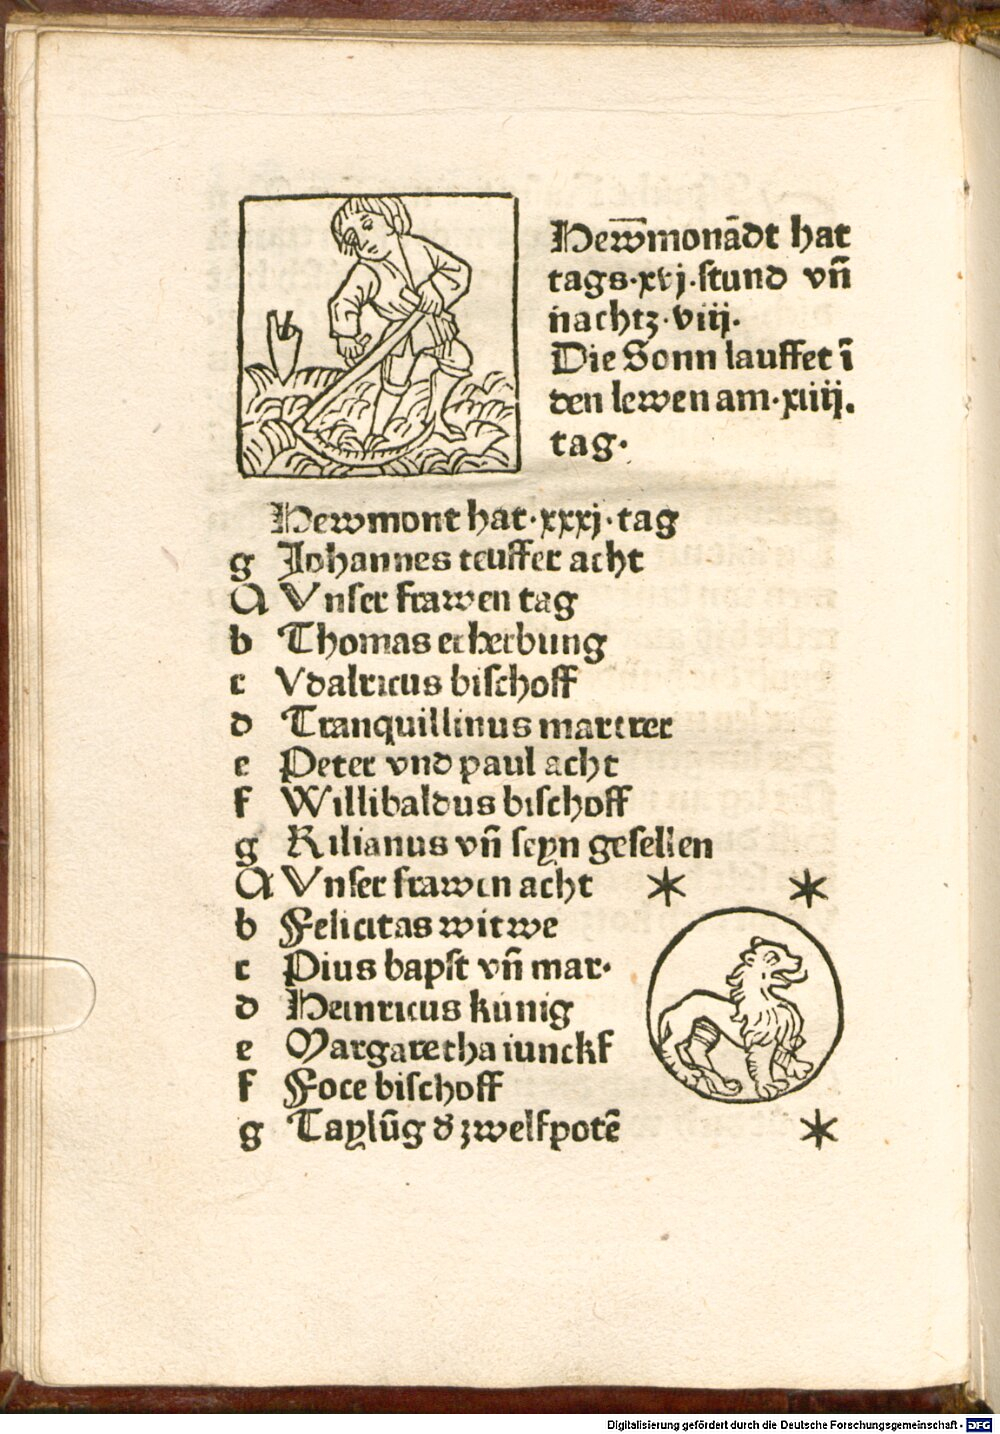 Hew̅monãdt hat
tags·xvj·stund vñ
nachtz·viij·
Die Sonn lauffet ī
den lewen am·xiiij.
tag·
Hewmont hat·xxxj·tag
g Johannes teuffer acht
A Vnser frawen tag
b Thomas erhebung
c Vdalricus bischoff
d Tranquillinus martrer
e Peter vnd paul acht
f Willibaldus bischoff
g Kilianus vñ seyn gesellen
A Vnser frawen acht
b Felicitas witwe
c Pius bapst vñ mar·
d Heinricus kúnig
e Margaretha iunckf
f Foce bischoff
g Taylūg d̕ zwelfpotē
Digitalisierung gefördert durch die Deutsche Forschungsgemeinschaft - DFG